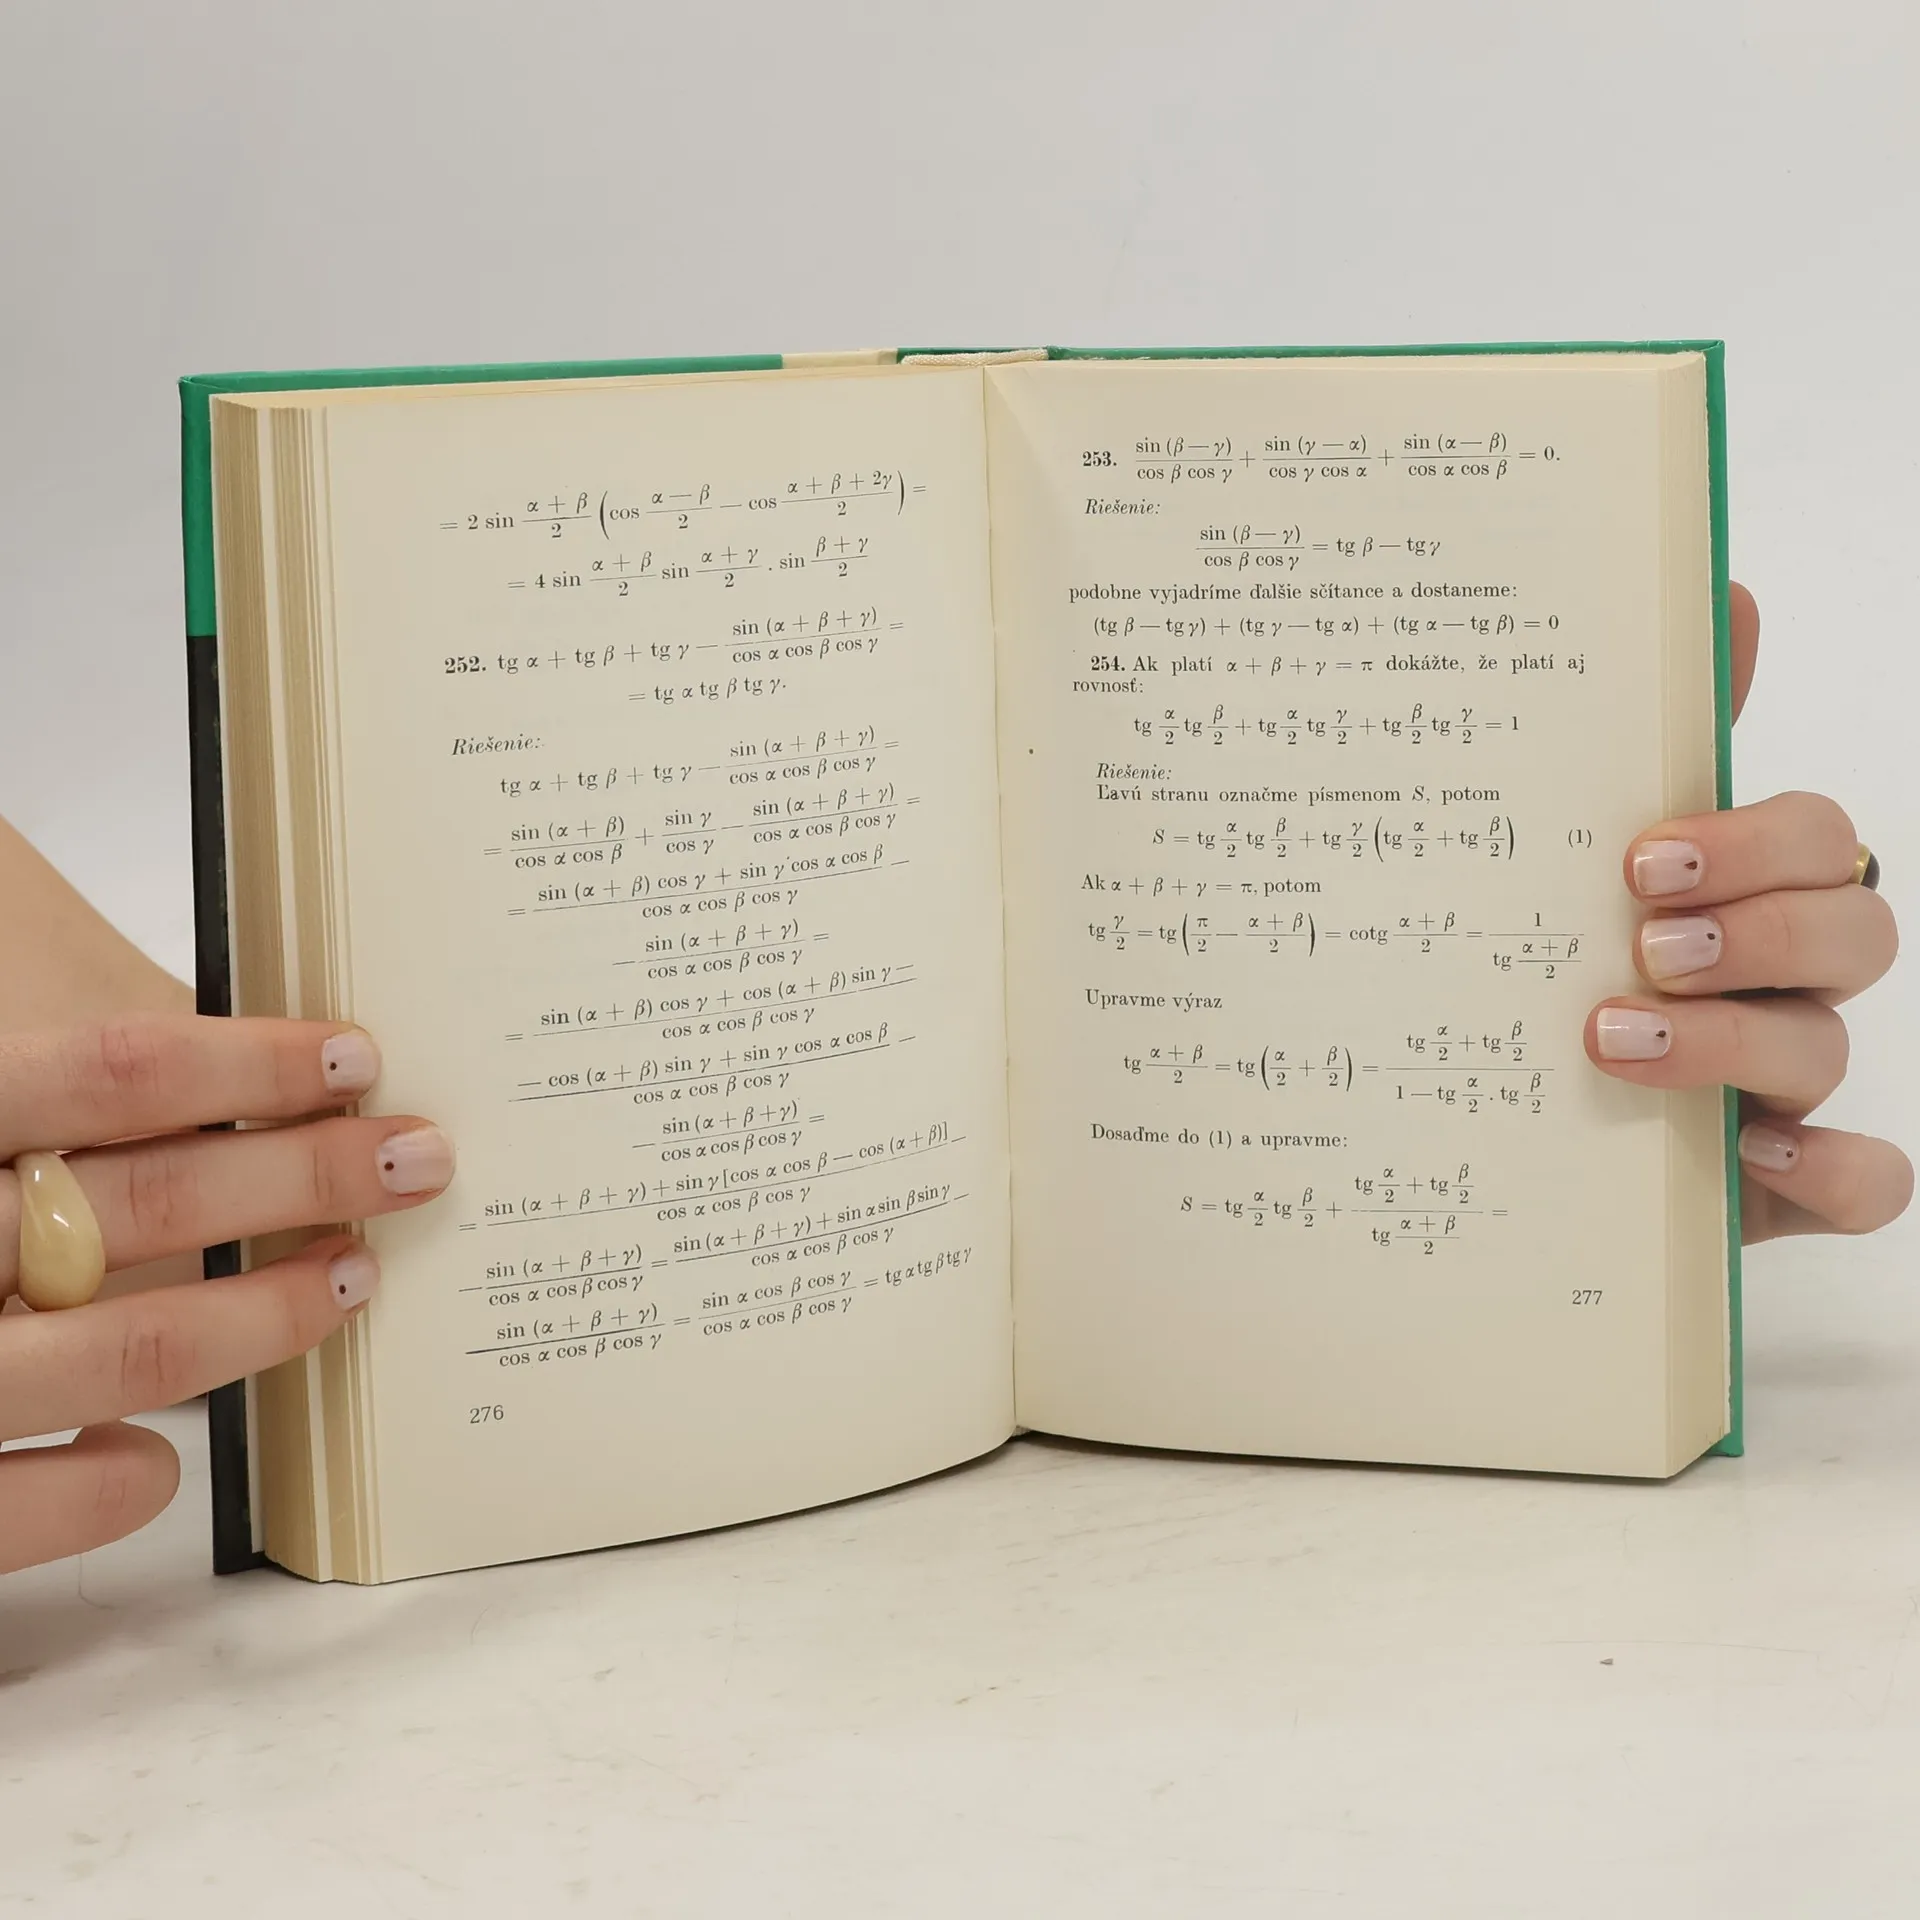 = 2 sin (α + β)/2 (cos (α — β)/2 — cos (α + β + 2γ)/2) =
= 4 sin (α + β)/2 sin (α + γ)/2 . sin (β + γ)/2
252. tg α + tg β + tg γ — sin (α + β + γ)/(cos α cos β cos γ) =
= tg α tg β tg γ.
Riešenie:
tg α + tg β + tg γ — sin (α + β + γ)/(cos α cos β cos γ) =
= sin (α + β)/(cos α cos β) + sin γ/cos γ — sin (α + β + γ)/(cos α cos β cos γ) =
= (sin (α + β) cos γ + sin γ cos α cos β)/(cos α cos β cos γ) —
— sin (α + β + γ)/(cos α cos β cos γ) =
= (sin (α + β) cos γ + cos (α + β) sin γ —)/(cos α cos β cos γ)
(— cos (α + β) sin γ + sin γ cos α cos β)/(cos α cos β cos γ) —
— sin (α + β + γ)/(cos α cos β cos γ) =
= (sin (α + β + γ) + sin γ [cos α cos β — cos (α + β)])/(cos α cos β cos γ) —
— sin (α + β + γ)/(cos α cos β cos γ) = (sin (α + β + γ) + sin α sin β sin γ)/(cos α cos β cos γ) —
— sin (α + β + γ)/(cos α cos β cos γ) = (sin α cos β cos γ)/(cos α cos β cos γ) = tg α tg β tg γ
276
253. sin (β — γ)/(cos β cos γ) + sin (γ — α)/(cos γ cos α) + sin (α — β)/(cos α cos β) = 0.
Riešenie:
sin (β — γ)/(cos β cos γ) = tg β — tg γ
podobne vyjadríme ďalšie sčítance a dostaneme:
(tg β — tg γ) + (tg γ — tg α) + (tg α — tg β) = 0
254. Ak platí α + β + γ = π dokážte, že platí aj
rovnosť:
tg α/2 tg β/2 + tg α/2 tg γ/2 + tg β/2 tg γ/2 = 1
Riešenie:
Ľavú stranu označme písmenom S, potom
S = tg α/2 tg β/2 + tg γ/2 (tg α/2 + tg β/2) (1)
Ak α + β + γ = π, potom
tg γ/2 = tg (π/2 — (α + β)/2) = cotg (α + β)/2 = 1/(tg (α + β)/2)
Upravme výraz
tg (α + β)/2 = tg (α/2 + β/2) = (tg α/2 + tg β/2)/(1 — tg α/2 . tg β/2)
Dosaďme do (1) a upravme:
S = tg α/2 tg β/2 + (tg α/2 + tg β/2)/(tg (α + β)/2) =
277